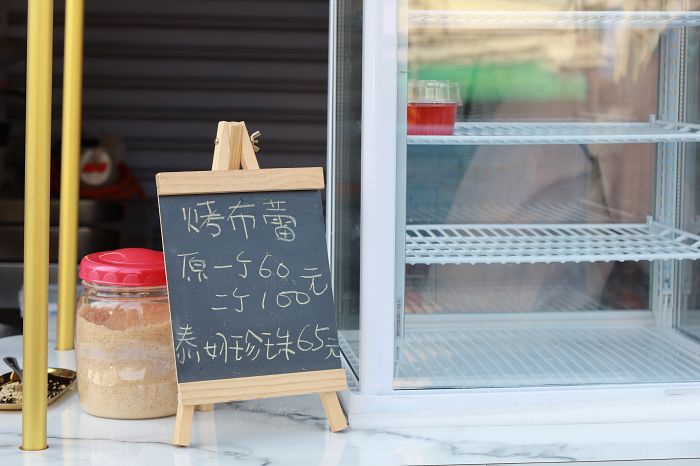 烤布蕾
原一个60
二个100元
泰奶珍珠65元